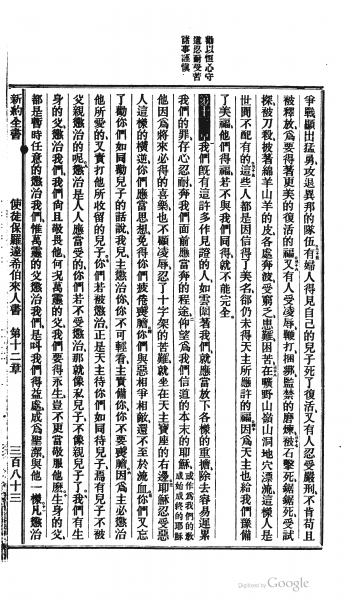 勸以恒心守
道忍耐受苦
諸事謹愼
爭戰顯出猛勇攻退異邦的隊伍有婦人得見自己的兒子死了復活又有人忍受嚴刑不肯苟且
被釋放爲要得著更美的復活的福又有人受凌辱鞭打捆綁監禁的磨煉被石擊死鋸鋸死受試
探被刀殺披著綿羊山羊的皮各處奔波受窮乏患難困苦在曠野山嶺山洞地穴漂流這樣人是
世間不配有的這些人都是因信得了美名卻仍未得天主所應許的福因爲天主也給我們豫備
了美福他們得福若不與我們同得就不能完全
第十二章 我們既有這許多作見證的人如雲圍著我們就應當放下各樣的重擔除去容易遲累
我們的罪存心忍耐奔我們面前應當奔的程途仰望爲我們信道的本末的耶穌 或作爲我們的教成始成終的耶穌
他因爲將來必得的喜樂也不顧凌辱忍了十字架的苦難就坐在天主寶座的右邊耶穌忍受惡
人這樣的橫逆你們應當思想免得你們疲倦喪膽你們與惡相爭相敵還不至於流血你們又忘
了勸你們如同勸兒子的話說我兒主懲治你你不可輕看主責備你你不要喪膽因爲主必懲治
他所愛的又責打他所收留的兒子你們若被懲治正是天主待你們如同待兒子焉有兒子不被
父親懲治的呢懲治是人人應當受的你們若不受懲治那就像私兒子不像親兒子了我們有生
身的父懲治我們我們向且敬畏他何況萬靈的父我們要得永生豈不更當敬服他麽生身的父
都是暫時任意的懲治我們惟萬靈的父懲治我們是叫我們得益處成爲聖潔與他一樣凡懲治
新約全書 使徒保羅達希伯來人書 第十二章 三百八十三
Digitized by Google